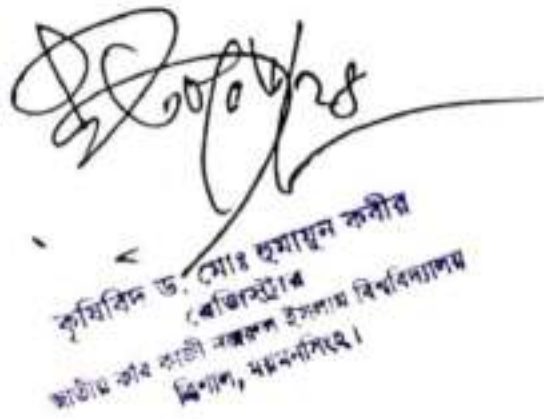 ২০/০৮/২৪
কৃষিবিদ ড. মোঃ হুমায়ুন কবীর
রেজিস্ট্রার
জাতীয় কবি কাজী নজরুল ইসলাম বিশ্ববিদ্যালয়
ত্রিশাল, ময়মনসিংহ।